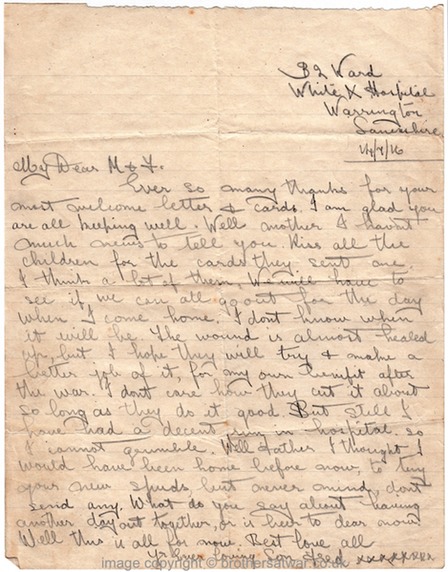 B2 Ward
White X Hospital
Warrington
Lancashire
14/7/16
My Dear M & F.
Ever so many thanks for your
most welcome letter & cards. I am glad you
are all keeping well. Well mother I havnt
much news to tell you. Kiss all the
children for the cards they sent me.
I think a lot of them. We will have to
see if we can all go out for the day
when I come home. I dont know when
it will be. The wound is almost healed
up, but I hope they will try & make a
better job of it, for my own benifit after
the war. I dont care how they cut it about
so long as they do it good. But still I
have had a decent time in hospital, so
I cannot grumble. Well Father I thought I
would have been home before now, to try
your new spuds, but never mind, dont
send any. What do you say about having
another day out together, or is beer to dear now
Well this is all for now. Best love all
Yr Ever loving Son Fred xxxxxxxx
image copyright © brothersatwar.co.uk